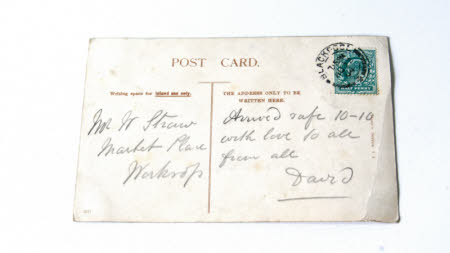 POST CARD.
Writing space for inland use only.
THE ADDRESS ONLY TO BE
WRITTEN HERE.
Mr W Straw
Market Place
Worksop
Arrived safe 10-10
with love to all
from all
David
HALF PENNY